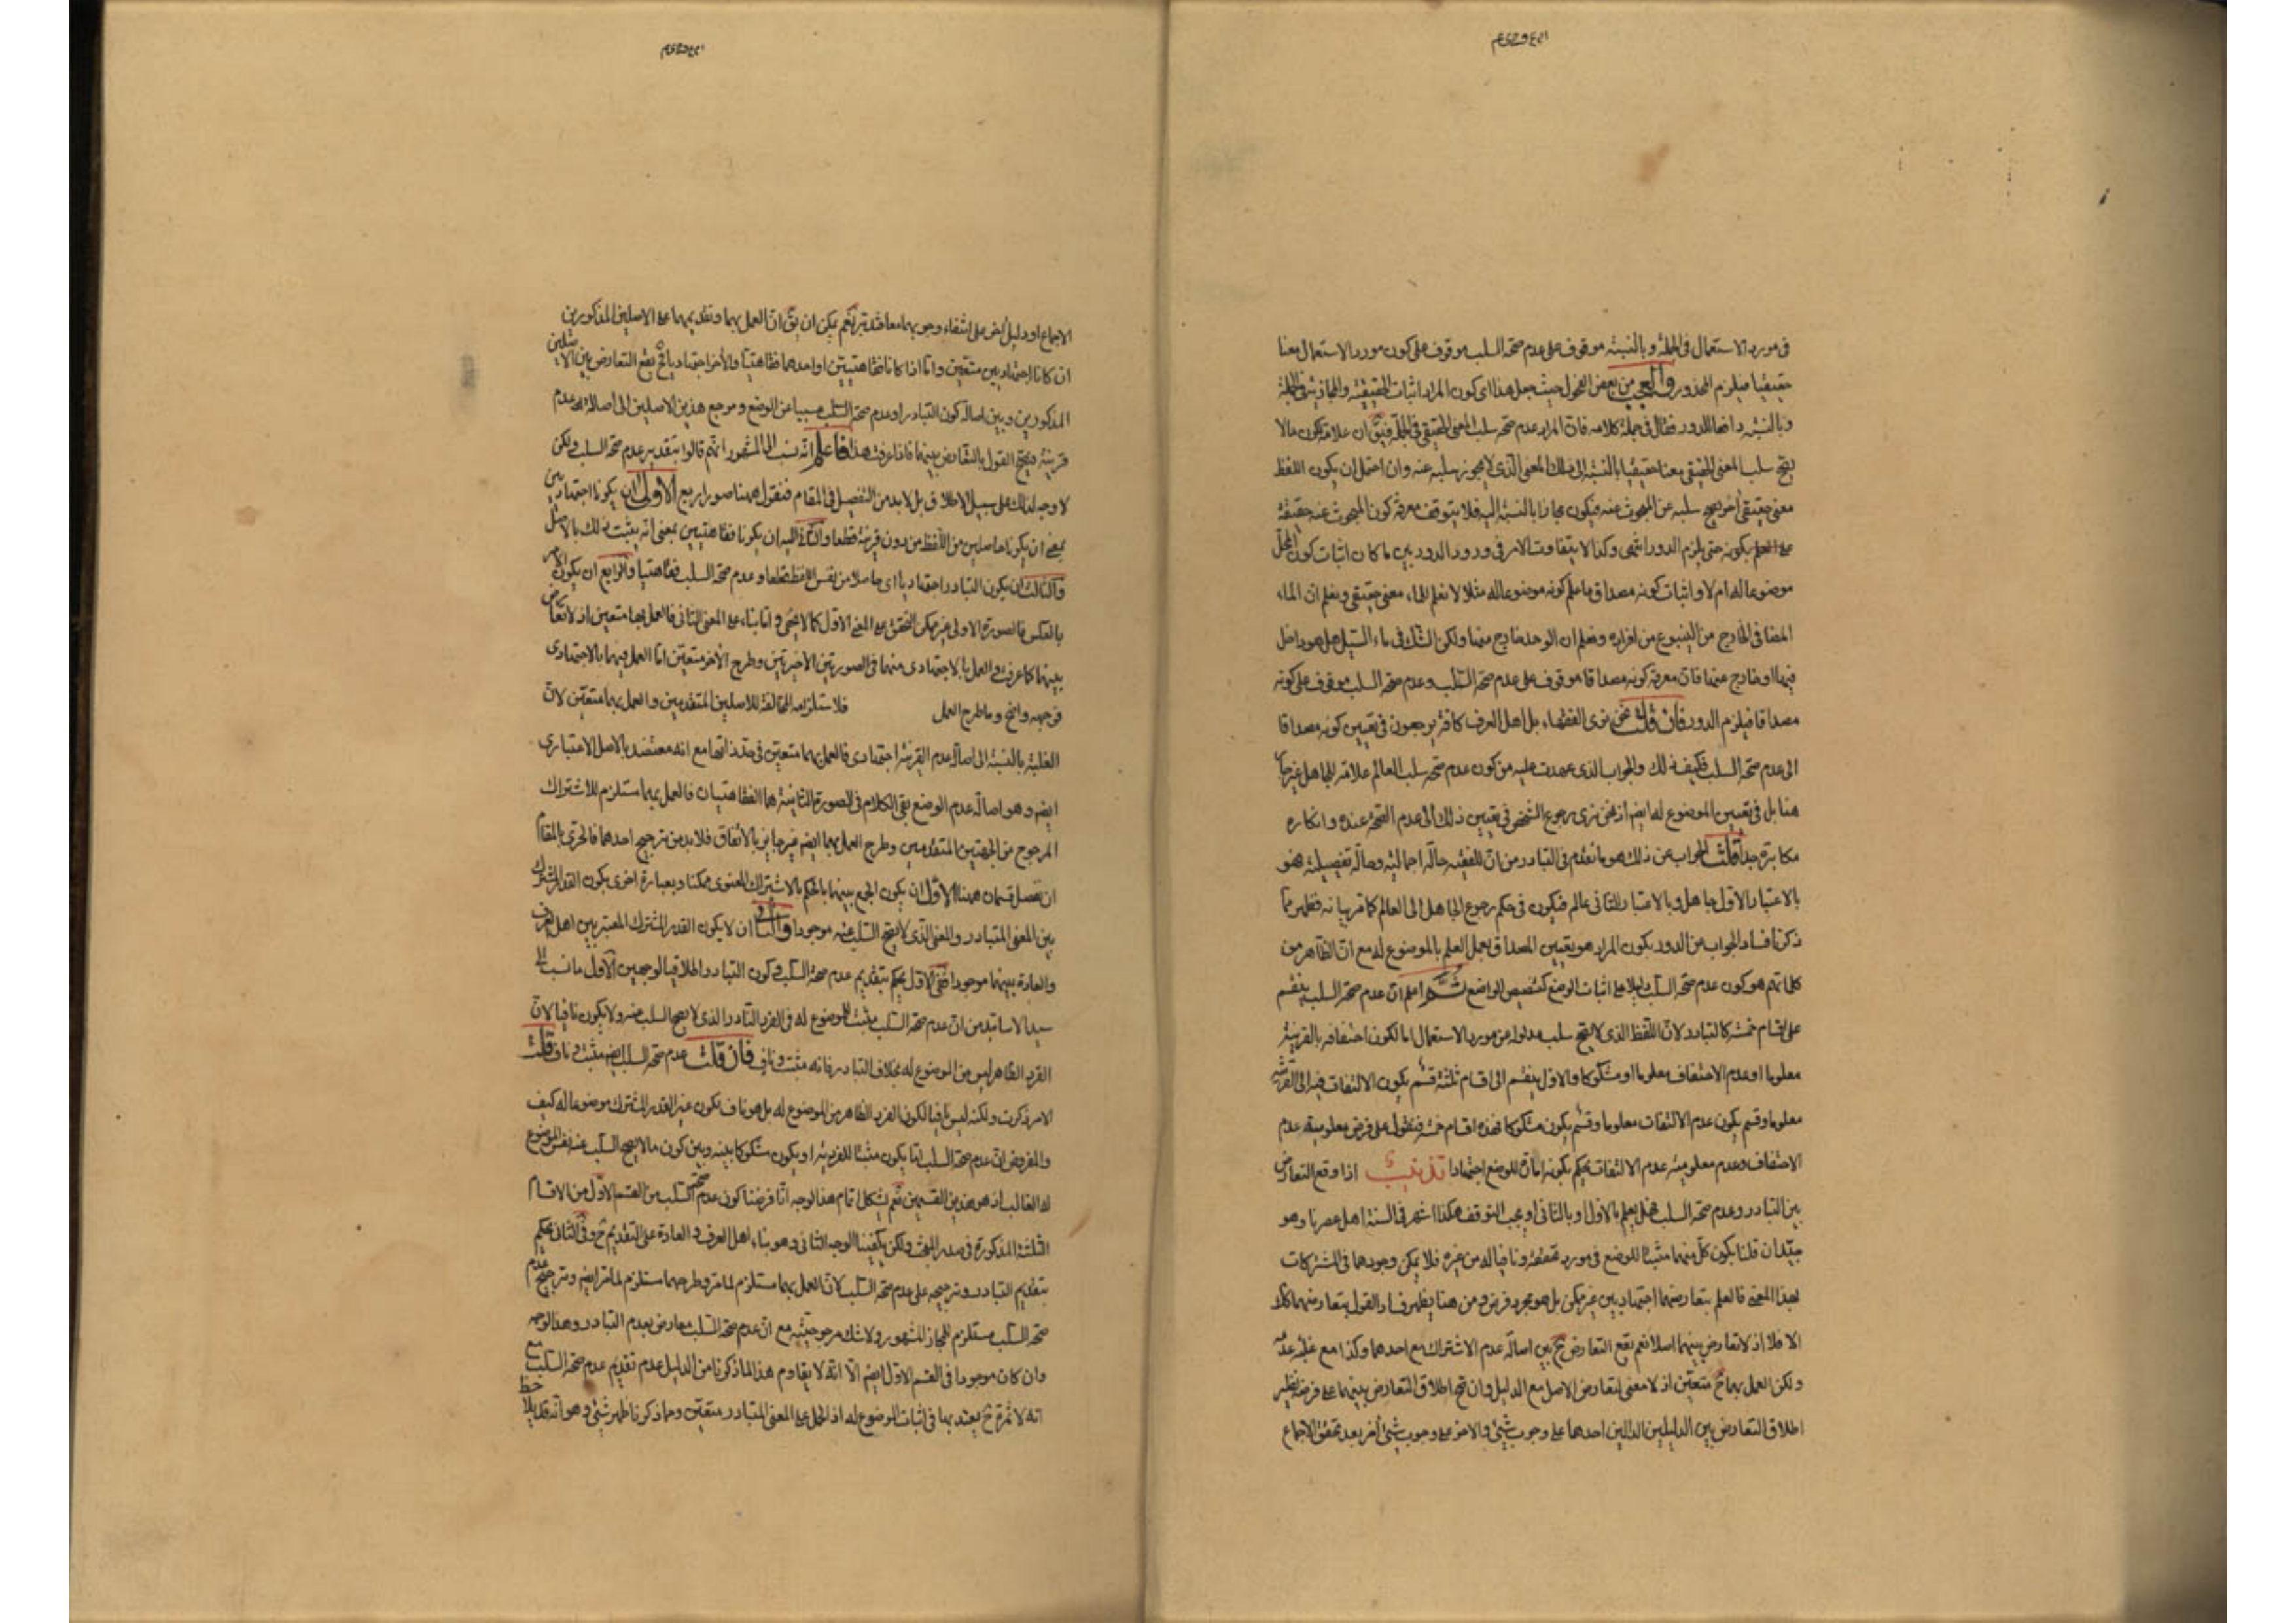 في مورد الاستعمال في الجملة وبالنسبة موقوف على عدم صحة السلب موقوف على كون مورد الاستعمال معنا
حقيقيا فيلزم المحذور والعجب من بعض الفحول حيث جعل هذا اى كون المراد اثبات الحقيقة والمجازية في الجملة
وبالنسبة دافعا للدور فقال في جملة كلامه فان المراد عدم صحة سلب المعنى الحقيقى في الجملة فيق ان علامة كون مالا
يصح سلب المعنى الحقيقى معنا حقيقيا بالنسبة الى ذلك المعنى الذى لا يجوز سلبه عنه وان احتمل ان يكون اللفظ
معنى حقيقى آخر يصح سلبه عن المبحوث عنه فيكون مجازا بالنسبة اليه فلا يتوقف معرفة كون المبحوث عنه حقيقة
على العلم بكونه حتى يلزم الدور انتهى وكذا لا يتفاوت الامر في ورود الدور بين ما كان اثبات كون المحل
موضوعا له ام لا واثبات كونه مصداق ما علم كونه موضوعا له مثلا لا نعلم للماء معنى حقيقى ونعلم ان الماء
الصافي الخارج من الينبوع من افراده ونعلم ان الوحل خارج منها ولكن الشك في ماء السيل هل هو داخل
فيها او خارج عنها فان معرفة كونه مصداقا موقوف على عدم صحة السلب وعدم صحة السلب موقوف على كونه
مصداقا فيلزم الدور فان قلت نحن نرى الفقهاء بل اهل العرف كافة يرجعون في تعيين كونه مصداقا
الى عدم صحة السلب فكيف ذلك والجواب الذى عهدت عليه من كون عدم صحة سلب العالم علامة للجاهل غير جار
هنا بل في تعيين الموضوع له ايض اذ نحن نرى رجوع الشخص في تعيين ذلك الى عدم الصحة عنده وانكاره
مكابرة جدا قلت الجواب عن ذلك هو ما تقدم في التبادر من ان للفقيه حالة اجمالية وحالة تفصيلية فهو
بالاعتبار الاول جاهل وبالاعتبار الثانى عالم فيكون في حكم رجوع الجاهل الى العالم كما مر بيانه فظهر مما
ذكرنا فساد الجواب عن الدور بكون المراد هو تعيين المصداق بعد العلم بالموضوع له مع ان الظاهر من
كلماتهم هو كون عدم صحة السلب دليلا على اثبات الوضع كتنصيص الواضع ثم اعلم ان عدم صحة السلب ينقسم
على اقسام خمسة كالتبادر لان اللفظ الذى لا يصح سلب مدلوله عن مورد الاستعمال اما لكون احتفافه بالقرينة
معلوما او عدم الاحتفاف معلوما او مشكوكا والاول ينقسم الى اقسام ثلثة قسم يكون الالتفات فيه الى القرينة
معلوما وقسم يكون عدم الالتفات معلوما وقسم يكون مشكوكا فهذه اقسام خمسة فنقول على فرض معلومية عدم
الاحتفاف وعدم معلومية عدم الالتفات يحكم بكونه امارة للوضع اجتهادا تذنيب اذا وقع التعارض
بين التبادر وعدم صحة السلب فهل يعلم بالاول او بالثانى او يجب التوقف هكذا اشتهر في السنة اهل عصرنا وهو
جيد ان قلنا بكون كل منهما مثبتا للوضع في مورد تحققه ونافيا له من غيره فلا يمكن وجودهما في المشتركات
بهذا المعنى فالعلم بتعارضهما اجتهاديين غير ممكن بل هو مجرد فرض ومن هنا يظهر فساد القول بتعارضهما كلا
الا فلا اذ لا تعارض بينهما اصلا نعم يقع التعارض ح بين اصالة عدم الاشتراك مع احدهما وكذا مع غلبة عدمه
ولكن العمل بهما ح متعين اذ لا معنى لتعارض الاصل مع الدليل وان صح اطلاق التعارض بينهما على فرضه نظير
اطلاق التعارض بين الدليلين الدالين احدهما على وجوب شيئ والاخر على وجوب شيئ آخر بعد تحقق الاجماع
الاجماع او دليل ايض على انتفاء وجوبهما معا فتدبر نعم يمكن ان يق ان العمل بهما وتقديمهما على الاصلين المذكورين
ان كانا اجتهاديين متعين واما اذا كانا فقاهتيين او احدهما فقاهتيا والآخر اجتهاديا فح يقع التعارض بين الاصلين
المذكورين وبين اصالة كون التبادر او عدم صحة السلب مسببا عن الوضع ومرجع هذين الاصلين الى اصالة عدم
قرينة فيصح القول بالتعارض بينهما فاذا عرفت هذا فاعلم انه نسب الى المشهور انهم قالوا بتقديم عدم صحة السلب ولكن
لا وجه لذلك على سبيل الاطلاق بل لا بد من التفصيل في المقام فنقول هيهنا صور اربع الاولى ان يكونا اجتهاديين
بمعنى ان يكونا حاصلين من اللفظ من دون قرينة قطعا والثانية ان يكونا فقاهتيين بمعنى انه يثبت ذلك بالاصل
والثالث ان يكون التبادر اجتهاديا اى حاصلا من نفس اللفظ قطعا وعدم صحة السلب فقاهتيا والرابع ان يكون الامر
بالعكس فالصورة الاولى غير ممكن التحقق على المعنى الاول كما لا يخفى واما بناء على المعنى الثانى فالعمل بهما متعين اذ لا تعارض
بينهما كما عرفت والعمل بالاجتهادى منهما في الصورتين الاخيرتين وطرح الآخر متعين اما العمل فيهما بالاجتهادى
فوجهه واضح وما طرح العمل فلاستلزامه المخالفة للاصلين المتقدمين والعمل بهما متعين لان
الغلبة بالنسبة الى اصالة عدم القرينة اجتهادى فالعمل بها متعين في حد ذاتها مع انه معتضد بالاصل الاعتبارى
ايض وهو اصالة عدم الوضع بقى الكلام في الصورة الثانية هما الفقاهتيان فالعمل بهما مستلزم للاشتراك
المرجوح من الجهتين المتقدمين وطرح العمل بهما ايض غير جايز بالاتفاق فلا بد من ترجيح احدهما فالحرى بالمقام
ان نفصل قسمان هيهنا الاول ان يكون الجمع بينهما بالحكم بالاشتراك المعنوى ممكنا وبعبارة اخرى يكون القدر المشترك
بين المعنى المتبادر والمعنى الذى لا يصح السلب عنه موجودا والثانى ان لا يكون القدر المشترك المعتبر بين اهل العرف
والعادة بينهما موجودا ففى الاول يحكم بتقديم عدم صحة السلب وكون التبادر اطلاقيا لوجهين الاول ما نسب الى
سيد الاساتيد من ان عدم صحة السلب مثبت للموضوع له في الفرد النادر الذى لا يصح السلب عنه ولا يكون نافيا لان
الفرد الظاهر ليس من الموضوع له بخلاف التبادر فانه مثبت وناف فان قلت عدم صحة السلب ايض مثبت وناف قلت
الامر ذكرت ولكنه ليس نافيا لكون الفرد الظاهر من الموضوع له بل هو ناف بكون غير القدر المشترك موضوعا له كيف
والمفروض ان عدم صحة السلب اما يكون مثبتا للفردية او يكون مشكوكا بينه وبين كون مالا يصح السلب عنه نفس الموضوع
له الغالب اذ هو هذين القسمين نعم يشكل تمام هذا الوجه اذا فرضنا كون عدم صحة السلب من القسم الاول من الاقسام
الثلثة المذكورة في صدر المبحث ولكن يكفينا الوجه الثانى وهو بناء اهل العرف والعادة على التقديم ح وفى الثانى يحكم
بتقديم التبادر وترجيحه على عدم صحة السلب لان العمل بهما مستلزم لما مر وطرحهما مستلزم لما مر ايض وترجيح عدم
صحة السلب مستلزم للمجاز المشهور ولا شك مرجوحيته مع ان عدم صحة السلب معارض بعدم التبادر وهذا الوجه
وان كان موجودا في القسم الاول ايض الا انه لا يقاوم هذا لما ذكرنا من الدليل عدم تقديم عدم صحة السلب مع
انه لا ثمرة ح يعتد بها في اثبات الموضوع له اذ الحمل على المعنى المتبادر متعين ومما ذكرنا ظهر شيئ وهو انه قد يلاحظ